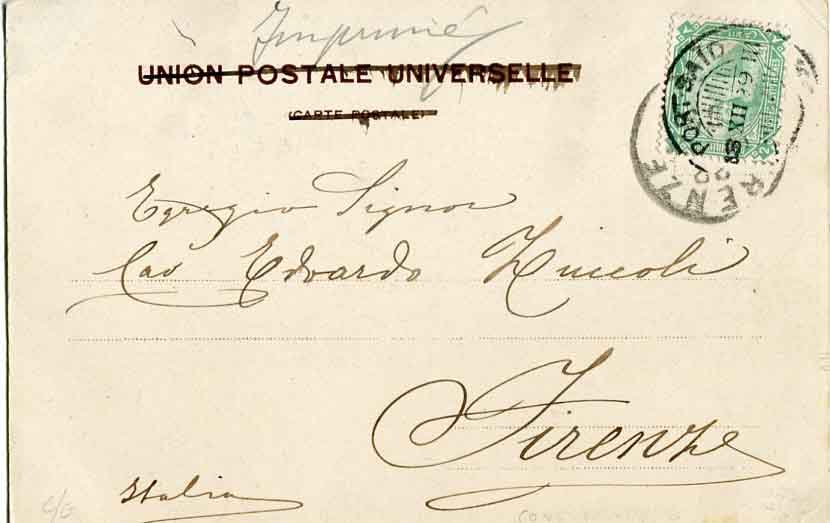 Imprimé
UNION POSTALE UNIVERSELLE
(CARTE POSTALE)
PORT-SAID
XII 99
Egregio Signor
Cav Edoardo Zuccoli
Firenze
Italia